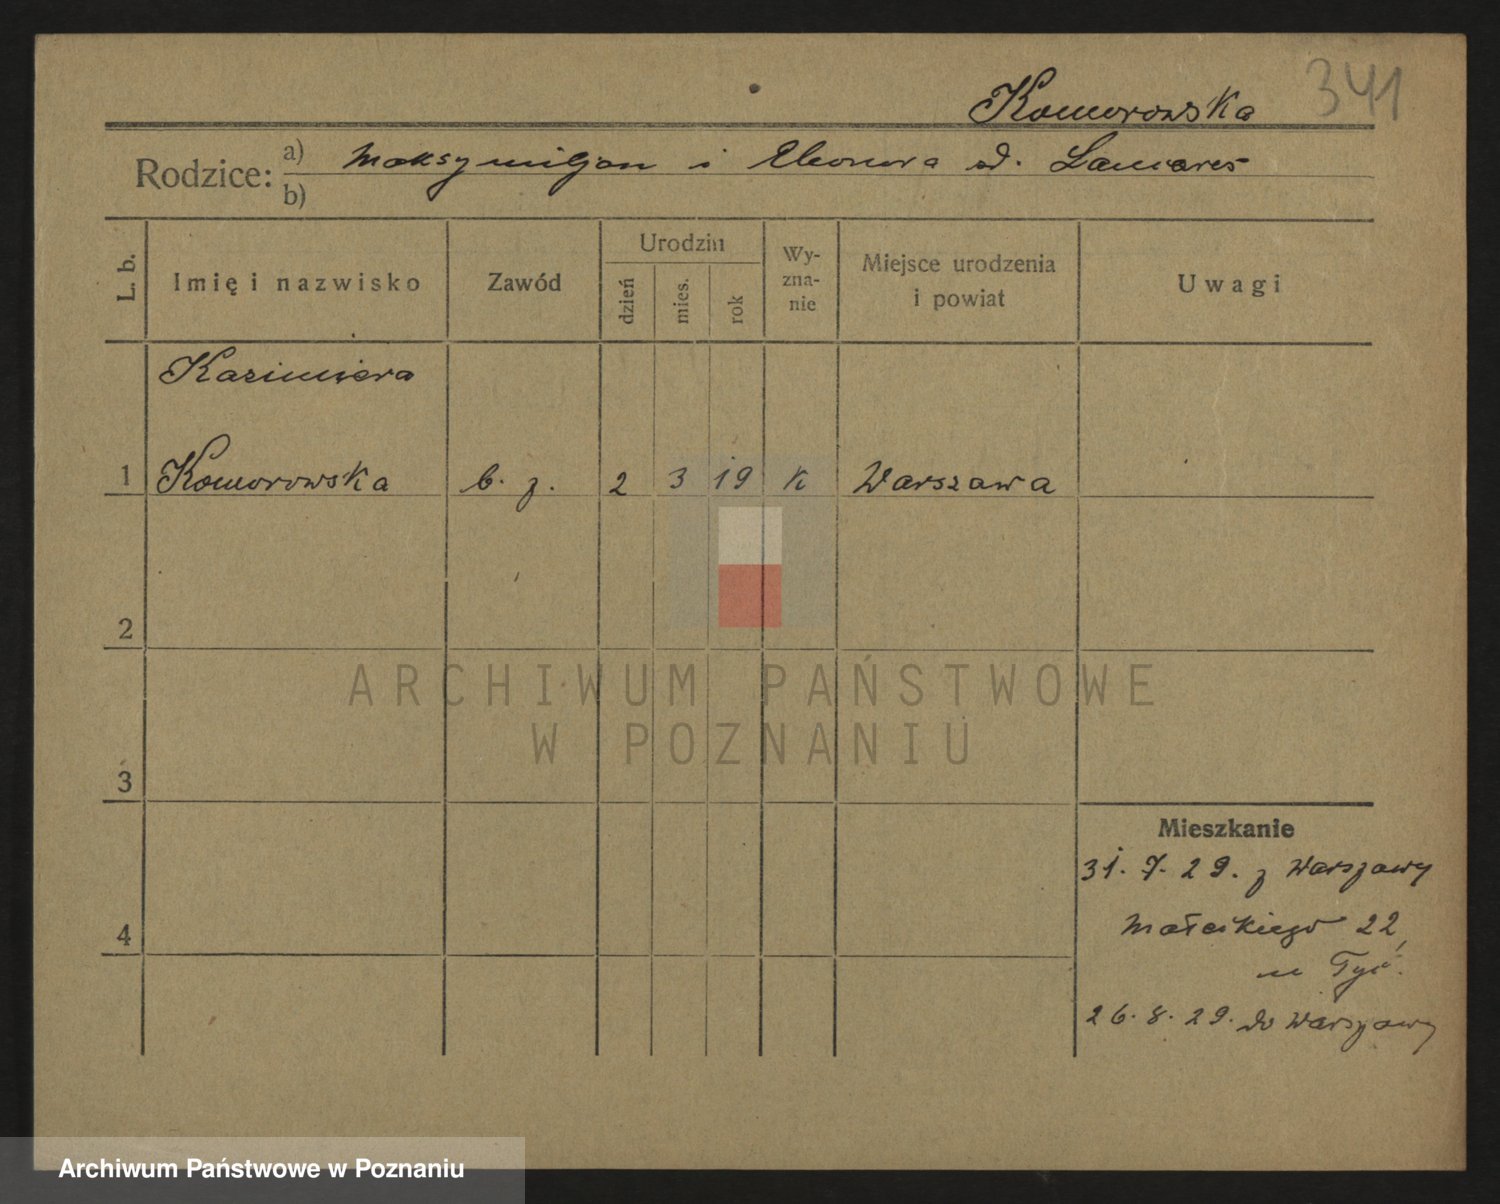 341
Komorowska
Rodzice: a) Maksymiljan i Eleonora
b)
L. b.
Imię i nazwisko
Zawód
Urodzin
dzień
mies.
rok
Wy-
zna-
nie
Miejsce urodzenia
i powiat
Uwagi
Kazimiera
1 Komorowska b. z. 2 3 19 k Warszawa
2
3
4
Mieszkanie
31. 7. 29. z Warszawy
Małeckiego 22,
u
26. 8. 29. do Warszawy
ARCHIWUM PAŃSTWOWE
W POZNANIU
Archiwum Państwowe w Poznaniu